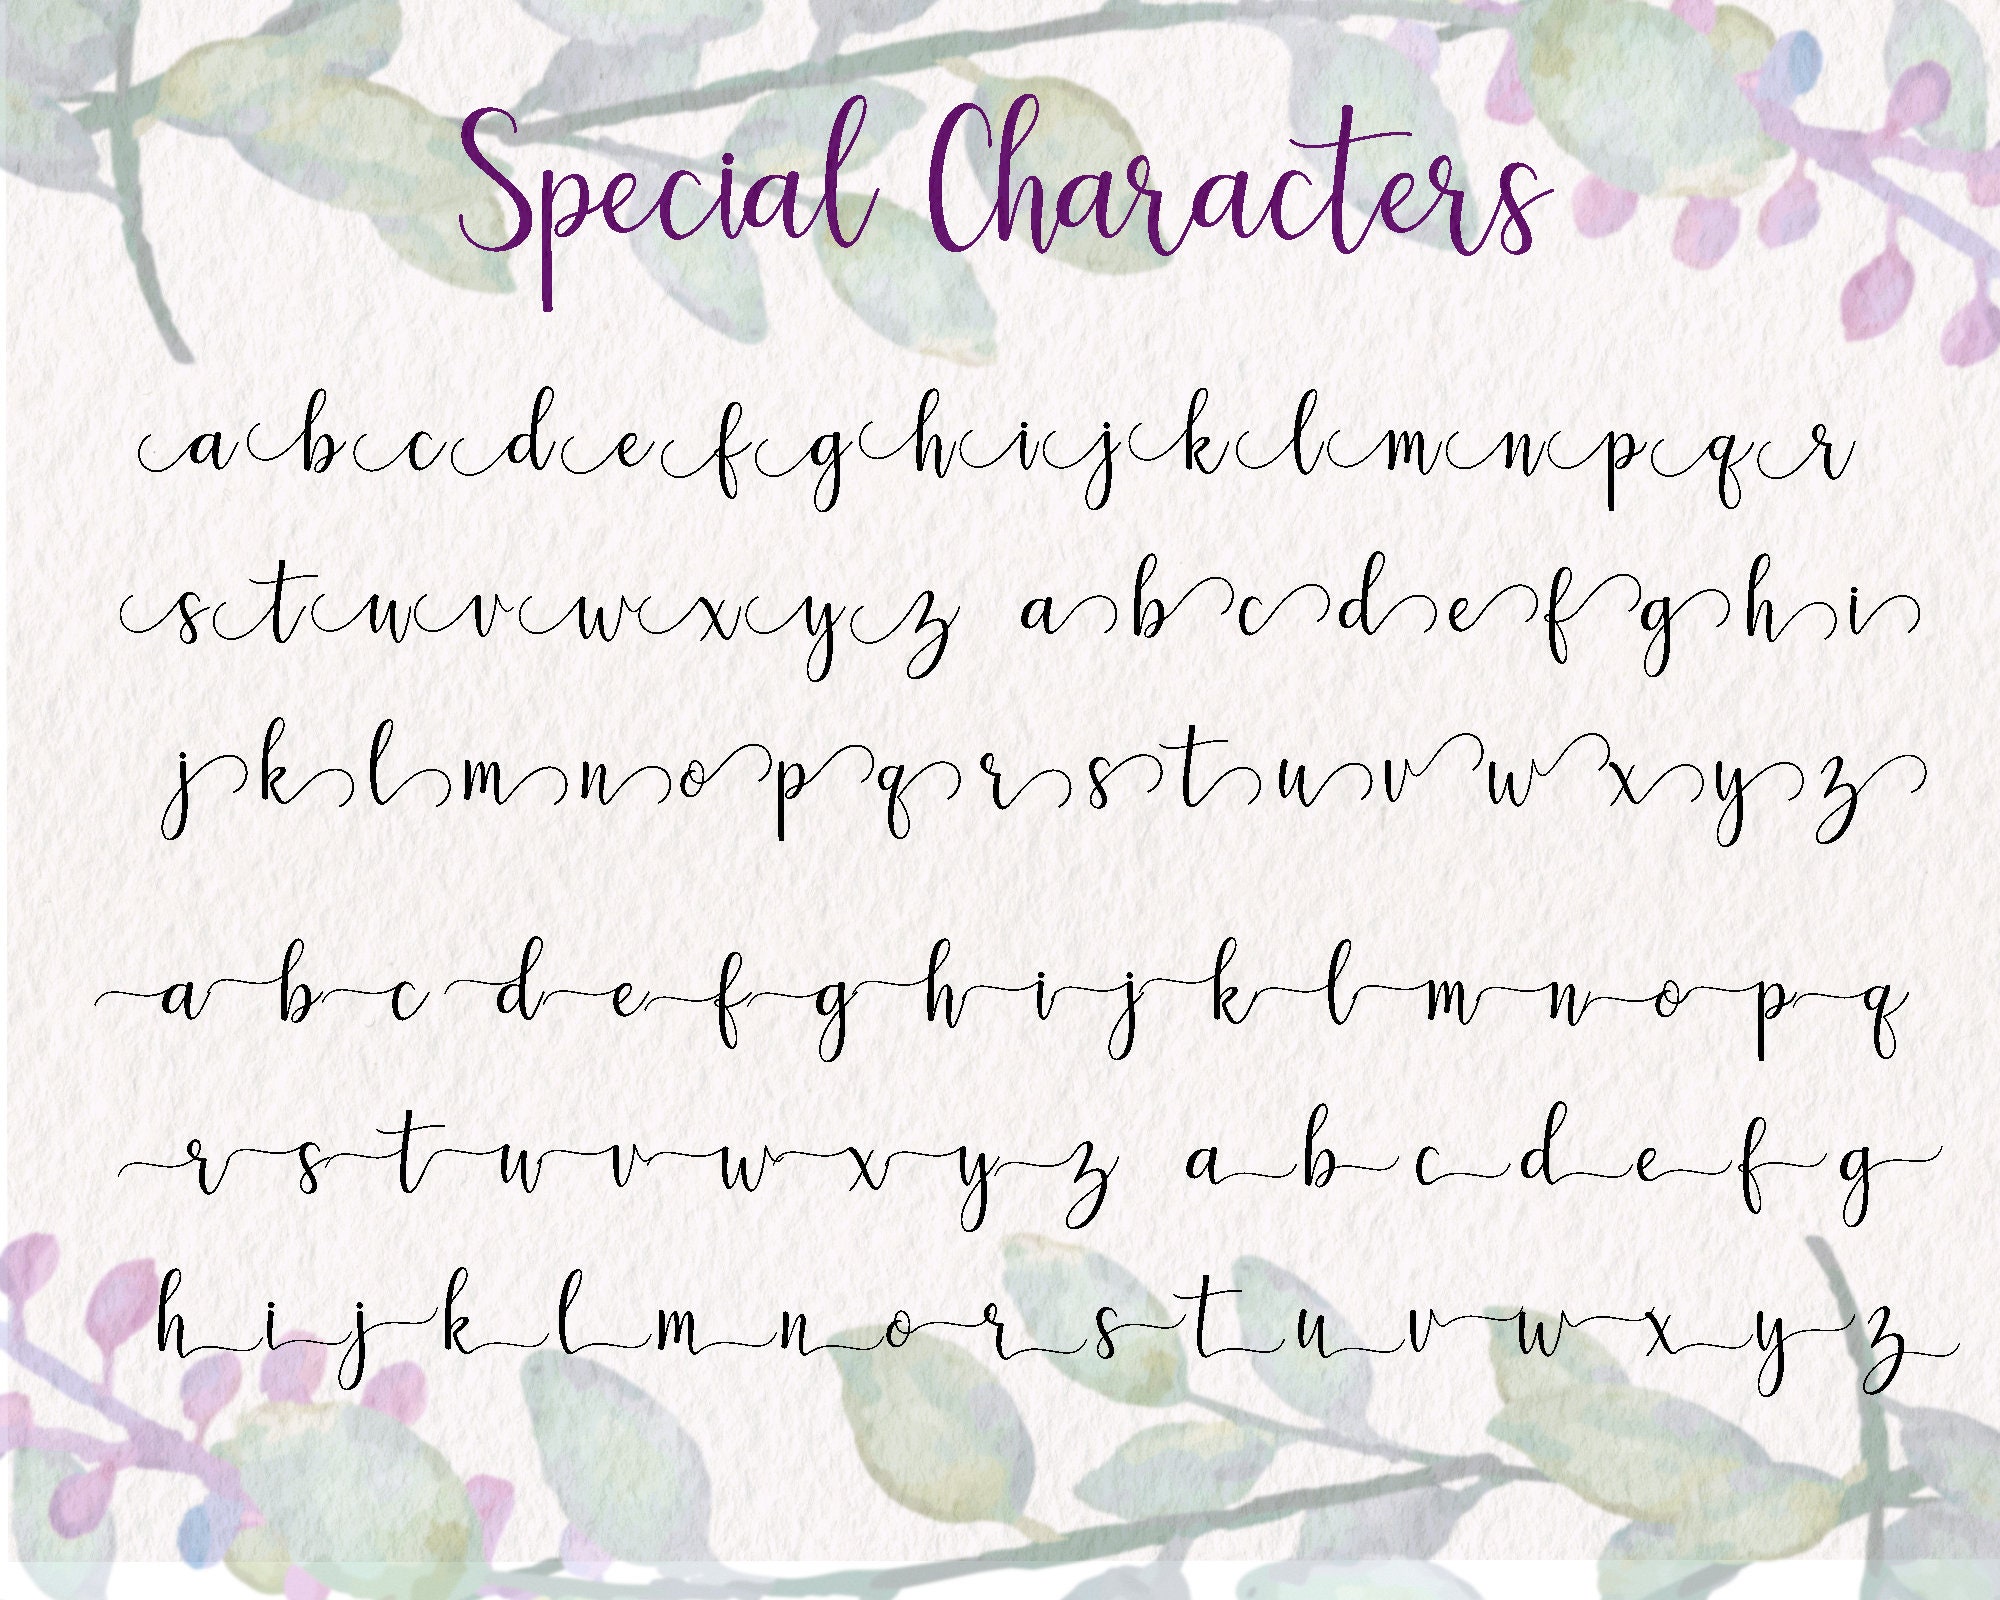 Special Characters
a b c d e f g h i j k l m n p q r
s t u v w x y z a b c d e f g h i
j k l m n o p q r s t u v w x y z
a b c d e f g h i j k l m n o p q
r s t u v w x y z a b c d e f g
h i j k l m n o r s t u v w x y z